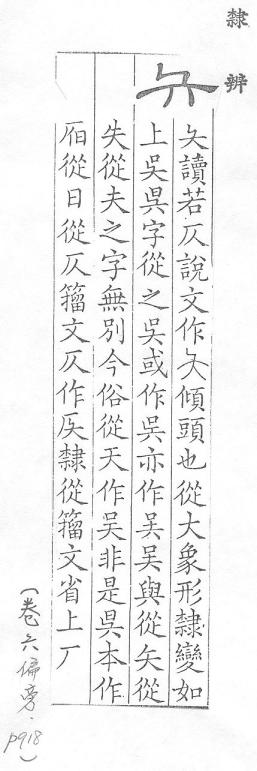 隸辨
夨
夨讀若仄說文作夨傾頭也從大象形隸變如
上吳昗字從之吳或作吳亦作吴吴與從矢從
失從夫之字無別今俗從天作吴非是昗本作
從日從仄籀文仄作𠨮隸從籀文省上厂
(卷六偏旁.p918)